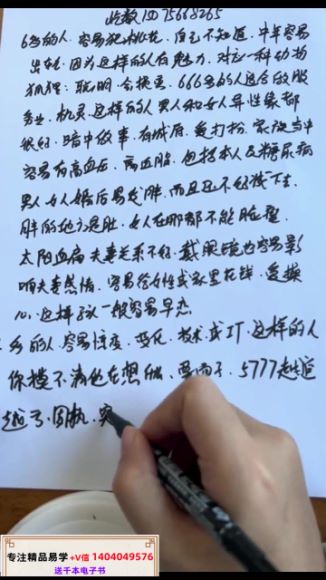 6多的人.容易犯桃花.自己不知道.中年容易
出轨.因为这样的人有魅力.对应一种动物
狐狸:聪明.会换号.666多的人适合做服
务业.机灵.这样的人男人和女人异性缘都
很好.暗中做事.有城府.爱打扮.家族当中
容易有高血压.高血脂.包括本人及糖尿病
男人女人婚后易发胖.而且还不好减下去
胖的地方是肚.女人在哪都不能脏整
太阳血病夫妻关系不好.戴眼镜也容易影
响夫妻感情.容易给女性或家里花钱.爱操
心.这样孩子一般容易早恋
多的人.容易怪变.变化.技术或IT.这样的人
你摸不清他在想什么.要面子.5777走歪道
固执.
专注精品易学+V信 1404049576
送千本电子书